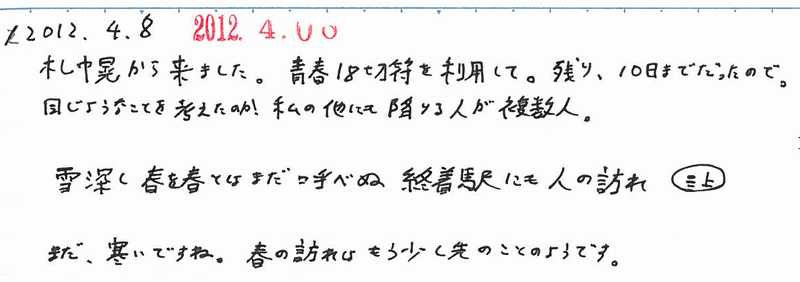 2012.4.8 2012.4.
札幌から来ました。青春18切符を利用して。残り、10日までだったので。
同じようなことを考えたのか!私の他にも降りる人が複数人。
雪深し春を春とはまだ呼べぬ 終着駅にも人の訪れ 三上
まだ、寒いですね。春の訪れはもう少し先のことのようです。